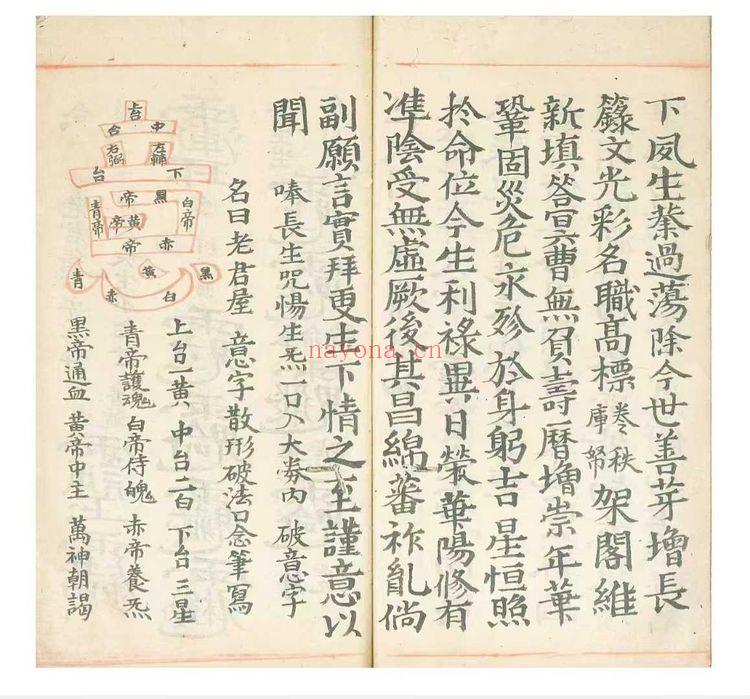 下夙生㷼過蕩除今世善芽增長
籙文光彩名職高標卷秩庫帑架閣維
新填答冥曹無負壽曆增崇年華
鞏固災危永殄於身躬吉星恒照
於命位今生利祿異日榮華陽修有
準陰受無虛厥後其昌綿蕃祚胤倘
副願言實拜更生下情之至謹意以
聞
唪長生咒惕生炁一口入大券內 破意字
名曰老君屋 意字散形破法口念筆寫
上台一黃 中台二白 下台三星
青帝護魂 白帝侍魄 赤帝養炁
黑帝通血 黃帝中主 萬神朝謁
上台
中台
左輔
右弼
下台
白帝
黑帝
黃帝
赤帝
青帝
黑
白
黃
赤
青
nayona.cn